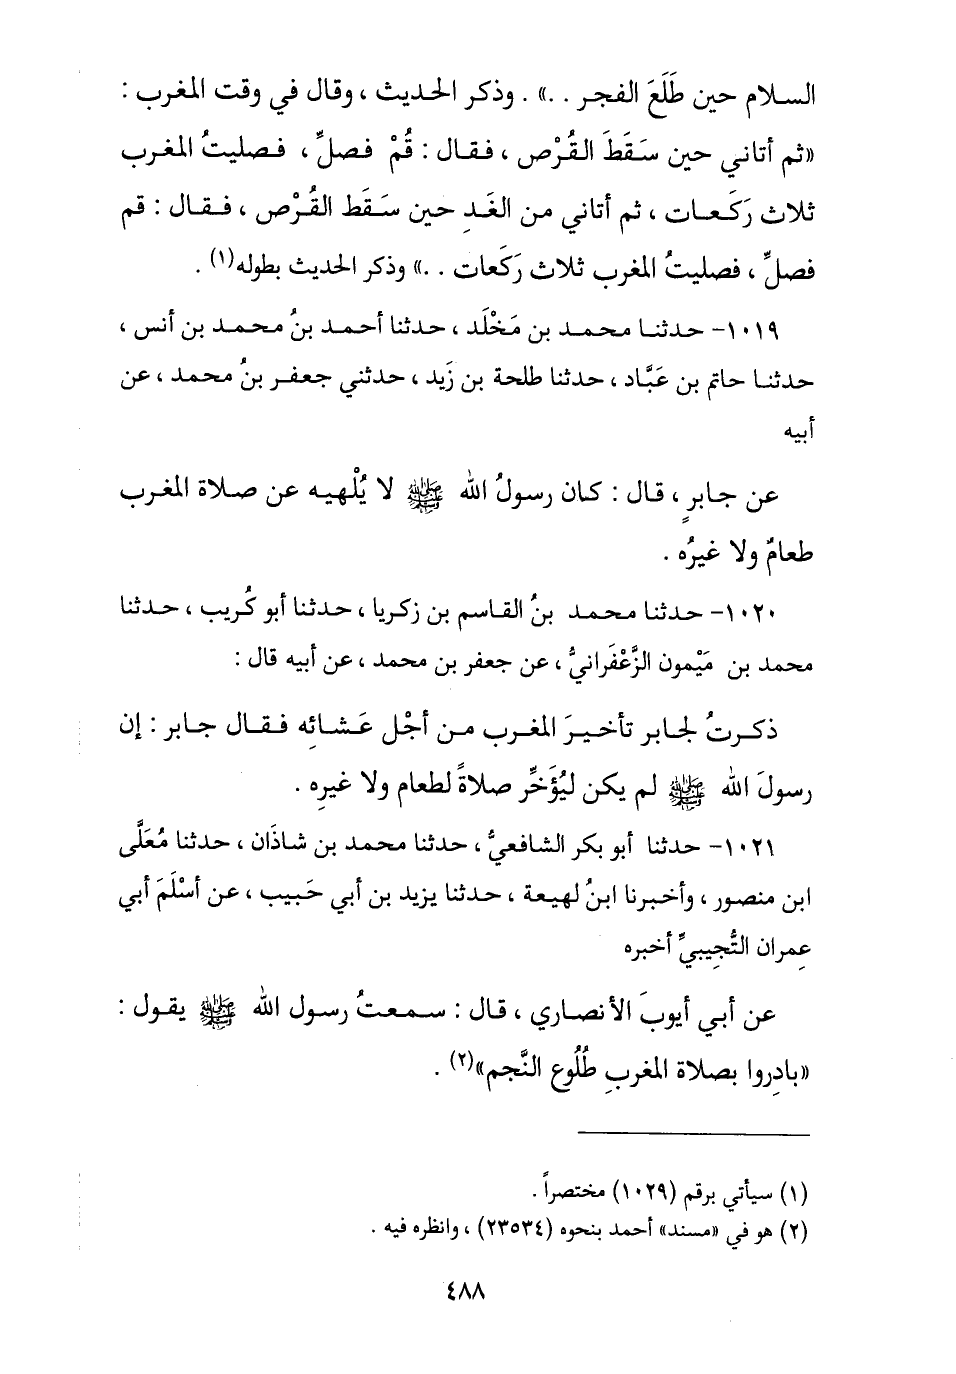 السلام حين طَلَعَ الفجر . .» . وذكر الحديث ، وقال في وقت المغرب :
«ثم أتاني حين سَقَطَ القُرْص ، فقال : قُمْ فصلِّ ، فصليتُ المغرب
ثلاث رَكَعات ، ثم أتاني من الغَدِ حين سَقَط القُرْص ، فقال : قم
فصلِّ ، فصليتُ المغرب ثلاث رَكَعات . .» وذكر الحديث بطوله(١) .
١٠١٩- حدثنا محمد بن مَخْلَد ، حدثنا أحمد بنُ محمد بن أنس ،
حدثنا حاتم بن عَبَّاد ، حدثنا طلحة بن زَيد ، حدثني جعفر بنُ محمد ، عن
أبيه
عن جابرٍ ، قال : كان رسولُ الله ﷺ لا يُلْهيه عن صلاة المغرب
طعامٌ ولا غيرُه .
١٠٢٠- حدثنا محمد بنُ القاسم بن زكريا ، حدثنا أبو كُريب ، حدثنا
محمد بن مَيْمون الزَّعْفَرانيُّ ، عن جعفر بن محمد ، عن أبيه قال :
ذكرتُ لجابر تأخيرَ المغرب من أجْل عَشائِه فقال جابر : إن
رسولَ الله ﷺ لم يكن ليُؤَخِّر صلاةً لطعام ولا غيرِه .
١٠٢١- حدثنا أبو بكر الشافعيُّ ، حدثنا محمد بن شاذَان ، حدثنا مُعَلَّى
ابن منصور ، وأخبرنا ابنُ لهيعة ، حدثنا يزيد بن أبي حَبيب ، عن أسْلَمَ أبي
عِمران التُّجِيبيِّ أخبره
عن أبي أيوبَ الأنصاري ، قال : سمعتُ رسول الله ﷺ يقول :
«بادِروا بصلاة المغربِ طُلُوع النَّجم»(٢) .
(١) سيأتي برقم (١٠٢٩) مختصراً .
(٢) هو في «مسند» أحمد بنحوه (٢٣٥٣٤) ، وانظره فيه .
٤٨٨